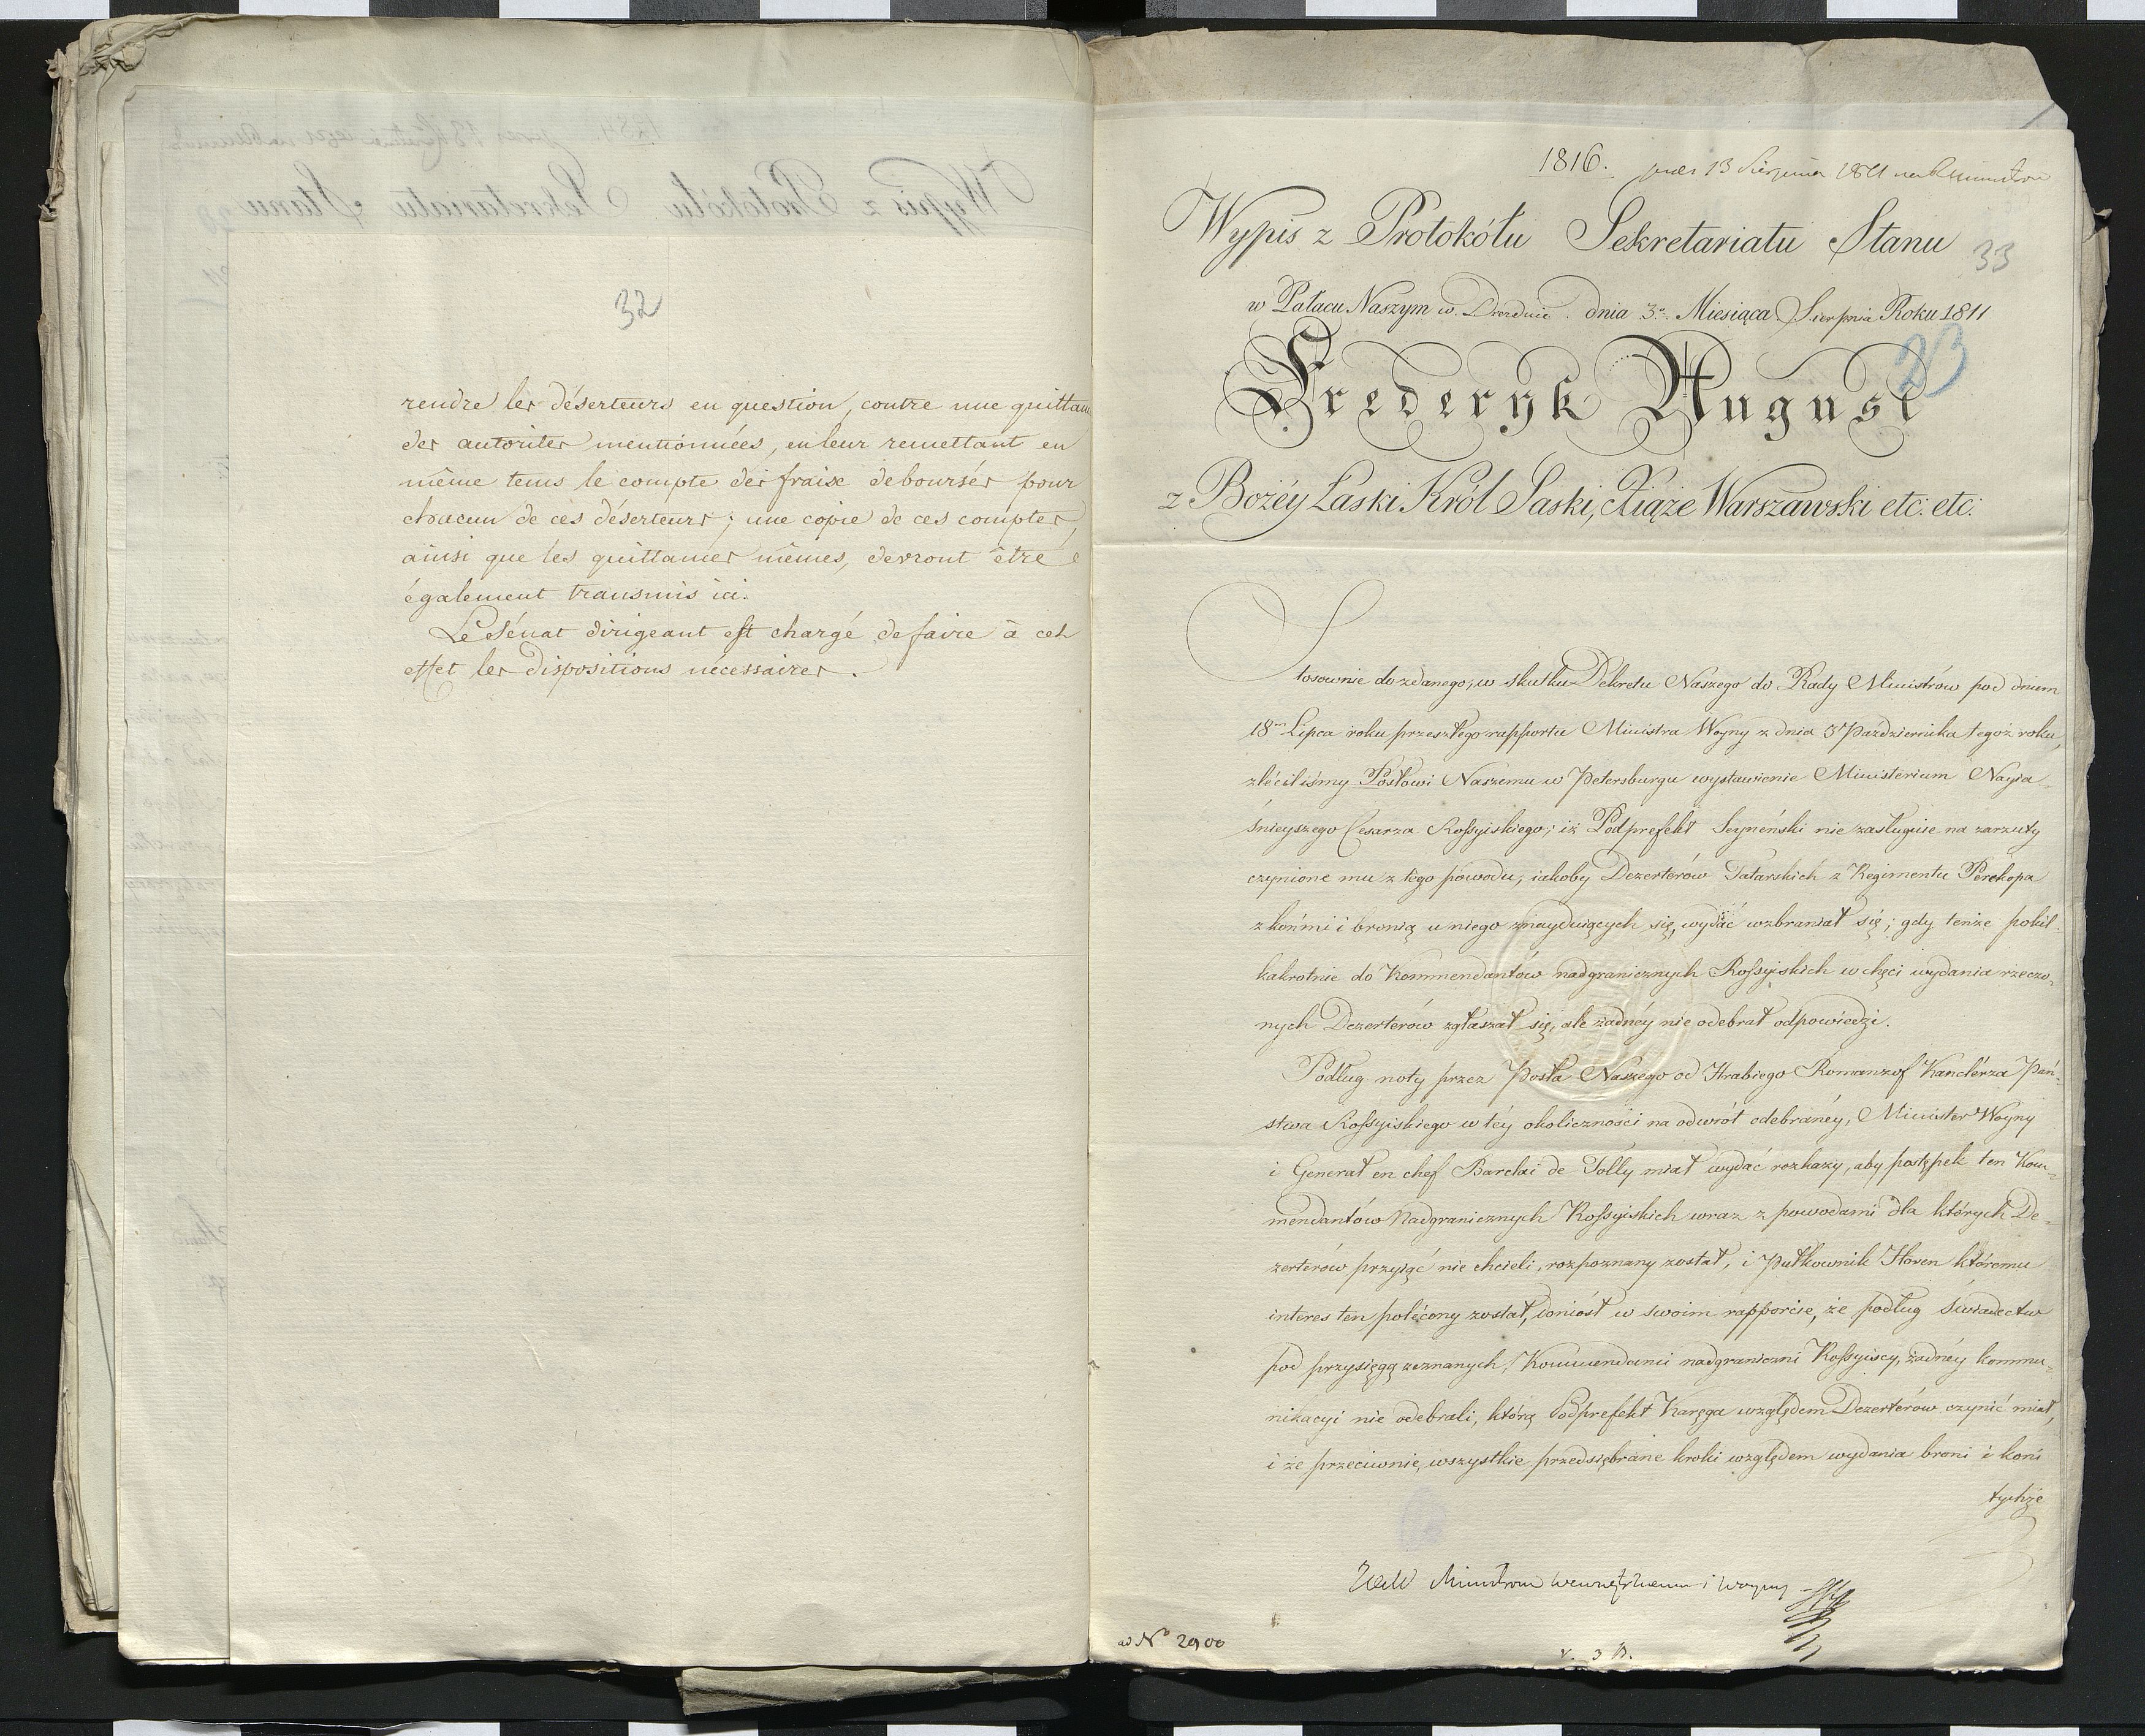 32
rendre les déserteurs en question, contre une quittan
des autorités mentionnées, en leur remettant en
même tems le compte des fraise deboursés pour
chacun de ces déserteurs; une copie de ces comptes,
ainsi que les quittances mêmes, devront être
également transmis ici.
Le Sénat dirigeant est chargé de faire à cet
effet les dispositions nécessaires.
1816. 13 Sierpnia 1811
Wypis z Protokółu Sekretariatu Stanu
33
w Pałacu Naszym w Dreznie dnia 3o Miesiąca Sierpnia Roku 1811
23
Frederyk August
z Bożéy Łaski Król Saski, Xiąże Warszawski etc: etc:
Stosownie do zdanego, w skutku Dekretu Naszego do Rady Ministrów pod dniem
18m Lipca roku przeszłego rapportu Ministra Woyny z dnia 3 Października tegoż roku,
zléciliśmy Posłowi Naszemu w Petersburgu wystawienie Ministerium Nayia-
śnieyszego Cesarza Rossyiskiego; iż Podprefekt Seyneński nie zasługuie na zarzuty
czynione mu z tego powodu, iakoby Dezerterów Tatarskich z Regimentu Perekopa
z końmi i bronią u niego znayduiących się, wydać wzbraniał się; gdy tenże pokil-
kakrotnie do Kommendantów nadgranicznych Rossyiskich w chęci wydania rzeczo-
nych Dezerterów zgłaszał się, ale żadnéy nie odebrał odpowiedzi.
Podług noty przez Posła Naszego od Hrabiego Romanzof Kanclérza Pań-
stwa Rossyiskiego w téy okoliczności na odwrót odebranéy, Minister Woyny
i Generał en chef Barclai de Tolly miał wydać rozkazy, aby postępek ten Kom-
mendantów Nadgranicznych Rossyiskich wraz z powodami dla których De-
zerterów przyiąć nie chcieli, rozpoznany został, i Pułkownik Horen któremu
interes ten polécony został, doniósł w swoim rapporcie, że podług świadectw
pod przysięgą zeznanych, Kommendanci nadgraniczni Rossyiscy, żadnéy kommu-
nikacyi nie odebrali, którą Podprefekt Karęga względem Dezerterów czynić miał,
i że przeciwnie, wszystkie przedsiębrane kroki względem wydania broni i koni
tychże
Ministrom Wewnętrznemu i Woyny
ad No 2900
v. 3 p.